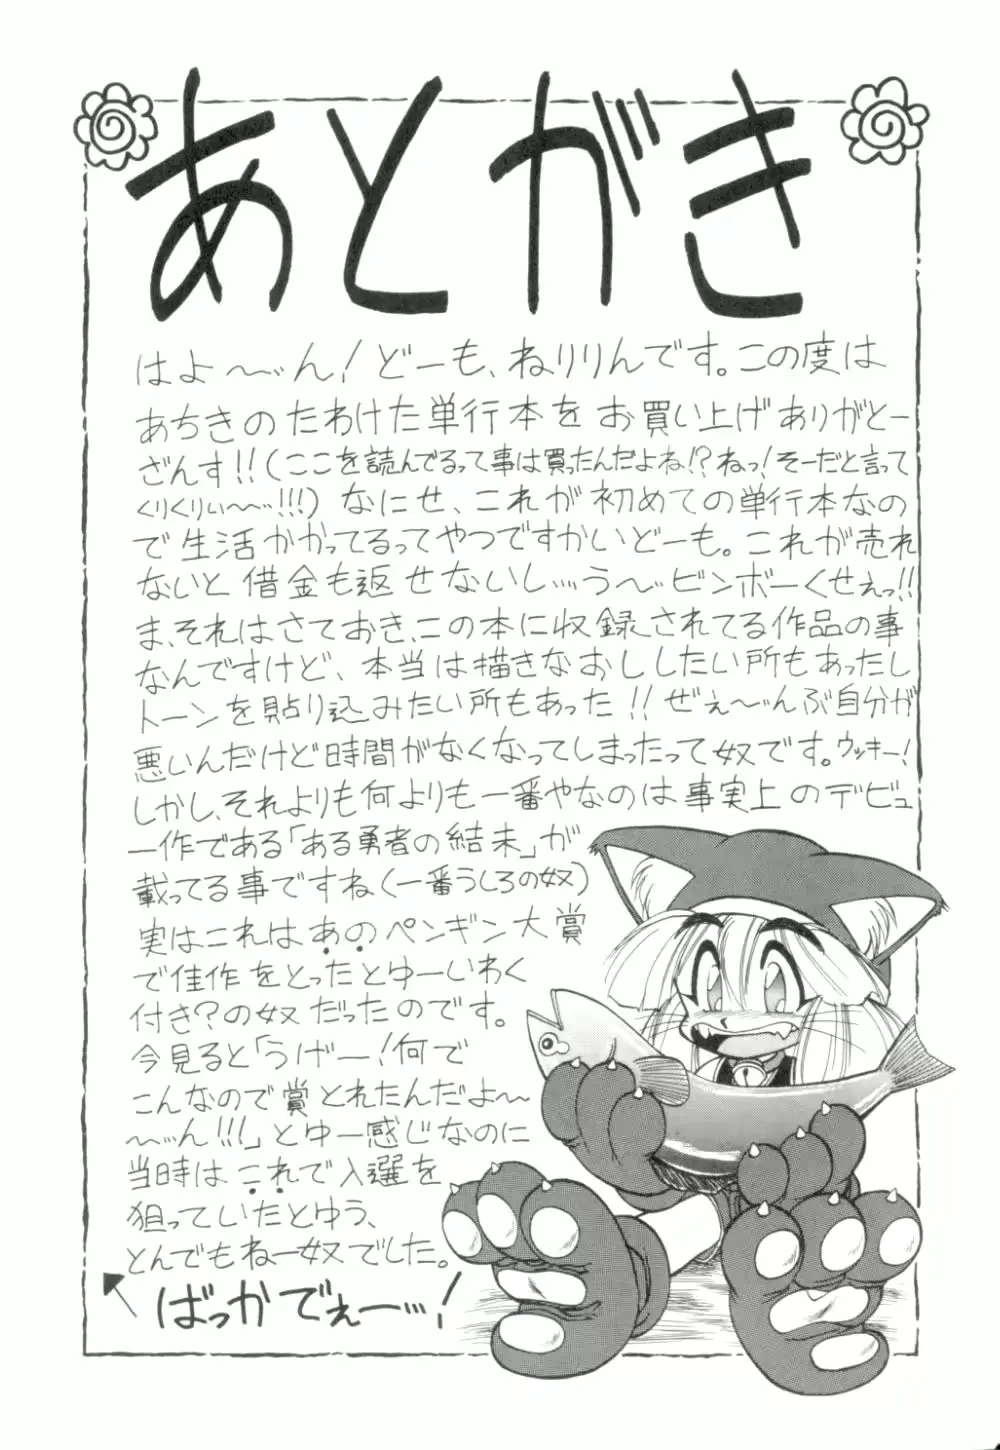 あとがき
はよ〜〜ん!どーも、ねりりんです。この度は
あちきのたわけた単行本をお買い上げありがとー
ざんす!!(ここを読んでるって事は買ったんだよね!?ねっ!そーだと言って
くりくりぃ〜〜!!!)なにせ、これが初めての単行本なの
で生活かかってるってやつですかいどーも。これが売れ
ないと借金も返せないし…う〜…ビンボーくせぇっ!!
ま、それはさておき、この本に収録されてる作品の事
なんですけど、本当は描きなおししたい所もあったし
トーンを貼り込みたい所もあった!!ぜぇ〜〜んぶ自分が
悪いんだけど時間がなくなってしまったって奴です。ウッキー!
しかし、それよりも何よりも一番やなのは事実上のデビュ
ー作である「ある勇者の結末」が
載ってる事ですね(一番うしろの奴)
実はこれはあのペンギン大賞
で佳作をとったとゆーいわく
付き?の奴だったのです。
今見ると「うげー!何で
こんなので賞とれたんだよ〜
〜…ん!!!」とゆー感じなのに
当時はこれで入選を
狙っていたとゆう、
とんでもねー奴でした。
ばっかでぇー…!